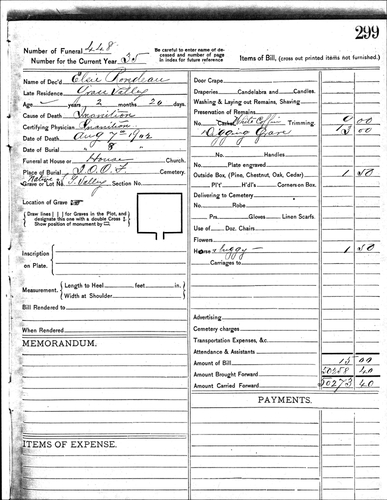 299
Number of Funeral 448
Number for the Current Year 35
Be careful to enter name of deceased and number of page in index for future reference
Items of Bill, (cross out printed items not furnished.)
Name of Dec'd Elsie Rondeau
Late Residence Grass Valley
Age years 2 months 20 days.
Cause of Death Inanition
Certifying Physician Inanition
Date of Death Aug 7th 1902
Date of Burial " 8 "
Funeral at House or House Church.
Place of Burial I.O.O.F. Cemetery.
Native
Grave or Lot No. G. Valley Section No.
Location of Grave
Draw lines | | for Graves in the Plot, and designate this one with a double Cross
Show position of monument by
Inscription on Plate.
Measurement, Length to Heel feet in.
Width at Shoulder in.
Bill Rendered to
When Rendered
MEMORANDUM.
ITEMS OF EXPENSE.
Door Crape
Draperies Candelabra and Candles.
Washing & Laying out Remains, Shaving
Preservation of Remains
No. Casket White Coffin Trimming. 9 00
Digging Grave 3 00
No. Handles
No. Plate engraved
Outside Box, (Pine, Chestnut, Oak, Cedar) 1 50
P/Y H'd/'s Corners on Box.
Delivering to Cemetery
No. Robe
Pr. Gloves Linen Scarfs.
Use of Doz. Chairs
Flowers
Hearse Buggy 1 50
Carriages to
Advertising
Cemetery charges
Transportation Expenses, &c.
Attendance & Assistants
Amount of Bill 15 00
Amount Brought Forward 50258 40
Amount Carried Forward 50273 40
PAYMENTS.